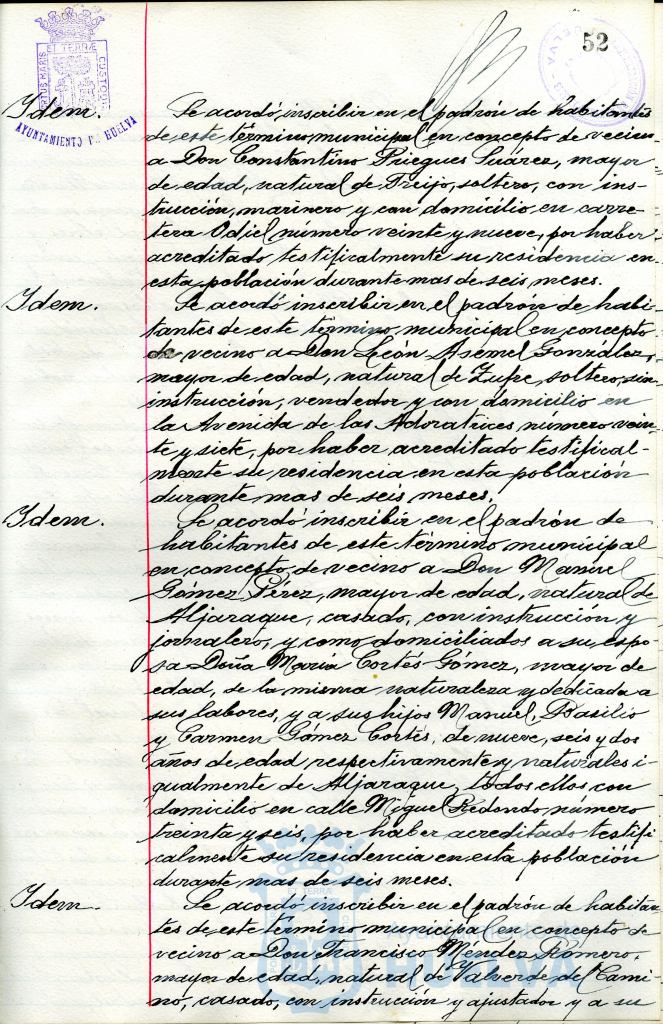 52
ET TERRÆ
CUSTODIA
AYUNTAMIENTO DE HUELVA
HUELVA
Idem. Se acordó inscribir en el padrón de habitantes
de este término municipal en concepto de vecino
a Don Constantino Priegues Suárez, mayor
de edad, natural de Treijo, soltero, con ins-
trucción, marinero y con domicilio en carre-
tera Odiel número veinte y nueve, por haber
acreditado testificalmente su residencia en
esta población durante mas de seis meses.
Idem. Se acordó inscribir en el padrón de habi-
tantes de este término municipal en concepto
de vecino a Don León Asémel González,
mayor de edad, natural de Zufre, soltero, sin
instrucción, vendedor y con domicilio en
la Avenida de las Adoratrices número vein-
te y siete, por haber acreditado testifical-
mente su residencia en esta población
durante mas de seis meses.
Idem. Se acordó inscribir en el padrón de
habitantes de este término municipal
en concepto de vecino a Don Manuel
Gómez Pérez, mayor de edad, natural de
Aljaraque, casado, con instrucción y
jornalero, y como domiciliados a su espo-
sa Doña María Cortés Gómez, mayor de
edad, de la misma naturaleza y dedicada a
sus labores, y a sus hijos Manuel, Basilio
y Carmen Gómez Cortés, de nueve, seis y dos
años de edad, respectivamente y naturales i-
gualmente de Aljaraque, todos ellos con
domicilio en calle Miguel Redondo número
treinta y seis, por haber acreditado testifi-
calmente su residencia en esta población
durante mas de seis meses.
Idem. Se acordó inscribir en el padrón de habitan-
tes de este término municipal en concepto de
vecino a Don Francisco Méndez Romero,
mayor de edad, natural de Valverde del Cami-
no, casado, con instrucción y ajustador y a su
ET TERRÆ
HUELVA